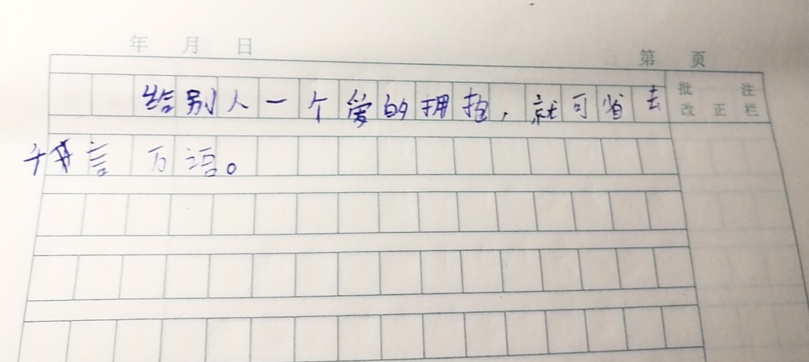 年 月 日
第 页
给别人一个爱的拥抱，就可省去
批 注
改 正 栏
千言万语。